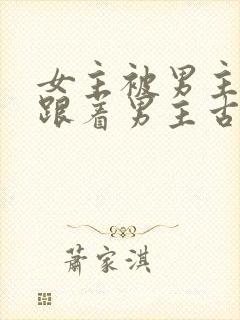 女主被男主
跟着男主古
萧家淇